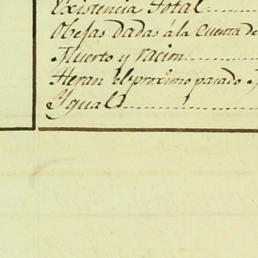 Existencia total
Obejas dadas á la Cuenta de
Muerto y racim
Heran el proximo pasado
Yguald